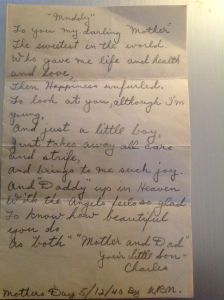 "Muddy"
To you my darling "Mother"
The sweetest in the world.
Who gave me life and health
and love,
Then Happiness unfurled.
To look at you, although I'm
young,
And just a little boy,
Just takes away all care
and strife,
and brings to me such joy.
And "Daddy" up in Heaven
With the Angels feels so glad
To know how beautiful
you do
As "both" "Mother and Dad"
Your little Son-
Charles
Mothers Day 5/12/40 By